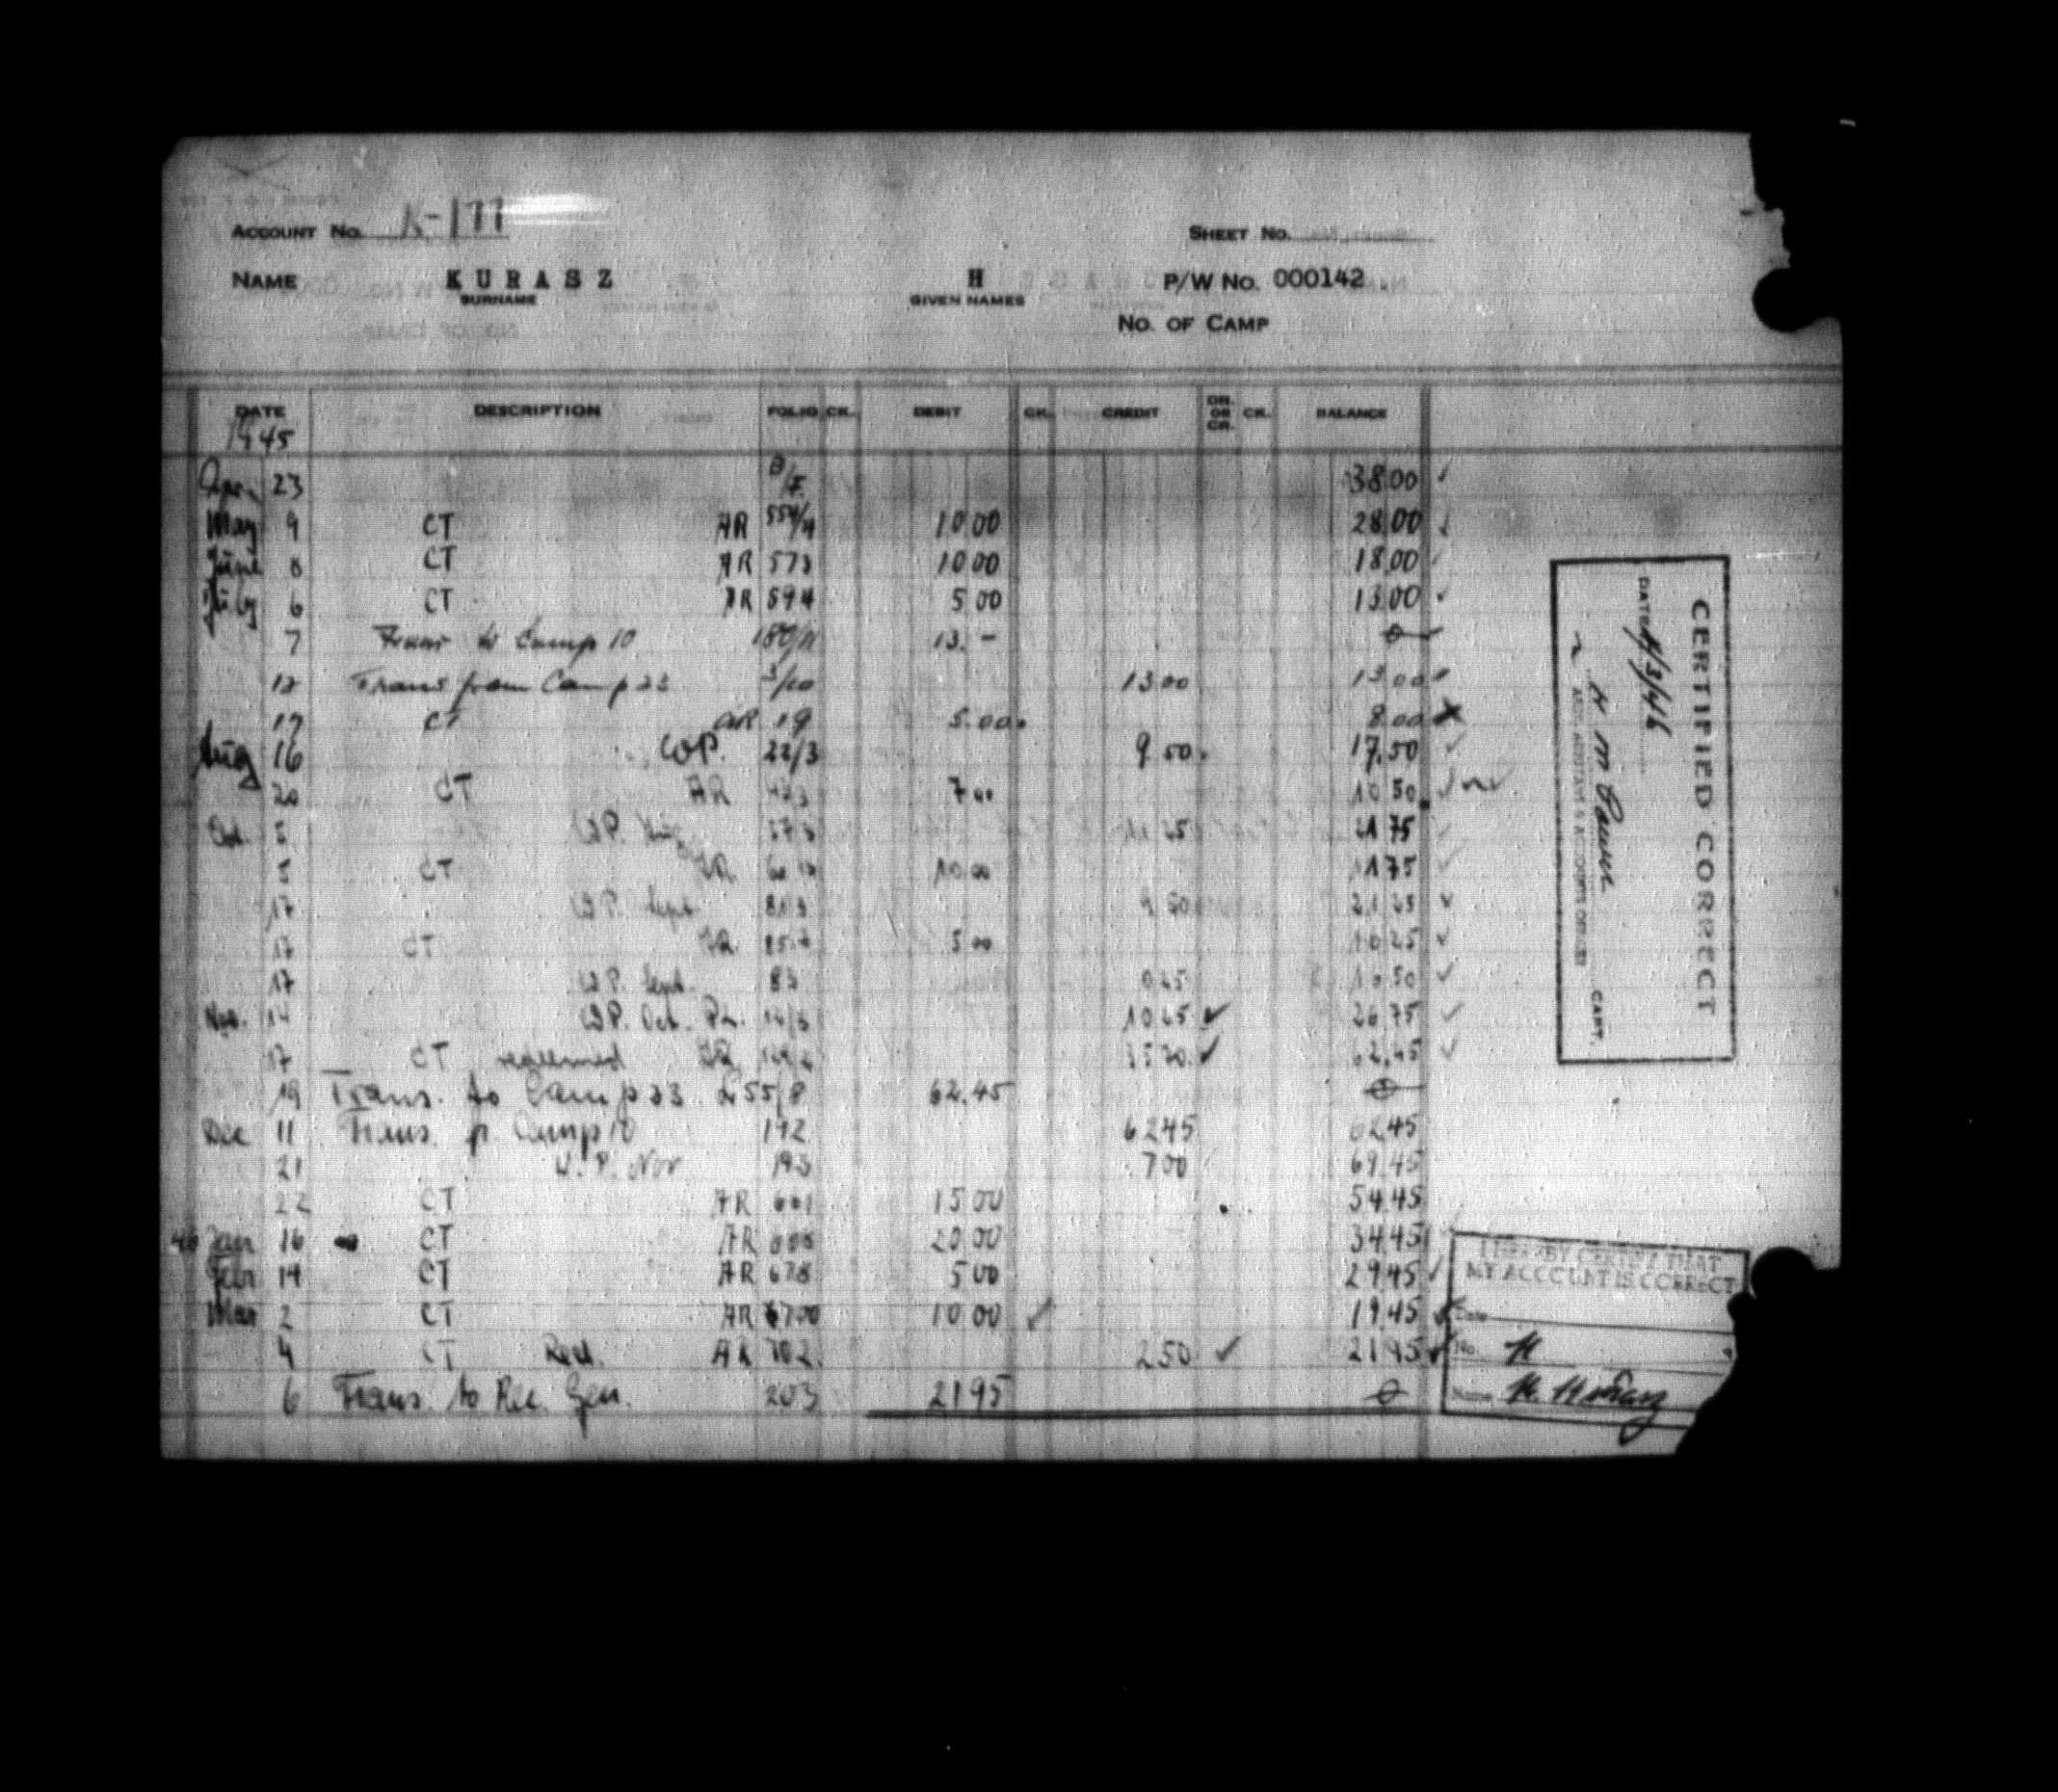 ACCOUNT NO. K-177
SHEET NO.
NAME KURASZ H P/W No. 000142
SURNAME GIVEN NAMES
NO. OF CAMP
DATE DESCRIPTION FOLIO CK. DEBIT CK. CREDIT DR. OR CR. CK. BALANCE
1945
Apr. 23 B/F. 38.00
May 9 CT AR 554/4 10.00 28.00
June 8 CT AR 573 10.00 18.00
July 6 CT AR 594 5.00 13.00
7 Trans to Camp 10 13.-
12 Trans from Camp 23 3/10 13.00 13.00
17 CT AR 19 5.00 8.00
Aug 16 WP. 22/3 9.50 17.50
20 CT AR 7.00 10.50
Oct. 5 WP. Aug 11.25 21.75
5 CT AR 10.00 11.75
17 WP. Sept 9.50 21.25
17 CT AR 5.00
17 WP. Sept. 0.25
Nov. WP. Oct. 10.25 26.75
17 CT redeemed AR 62.45
19 Trans. to Camp 23 55/8 62.45
Dec 11 Trans. fr. Camp 10 192 62.45 62.45
21 W.P. Nov 193 7.00 69.45
22 CT AR 15.00 54.45
46 Jan 16 CT AR 20.00 34.45
Feb 14 CT AR 678 5.00 29.45
Mar 2 CT AR 700 10.00 19.45
4 CT Red. AR 702 2.50 21.95
6 Trans. to Rec. Gen. 203 21.95
CERTIFIED CORRECT
DATE 4/3/46
CAPT.
I HEREBY CERTIFY THAT
MY ACCOUNT IS CORRECT
Date
No.
Name H. Kurasz